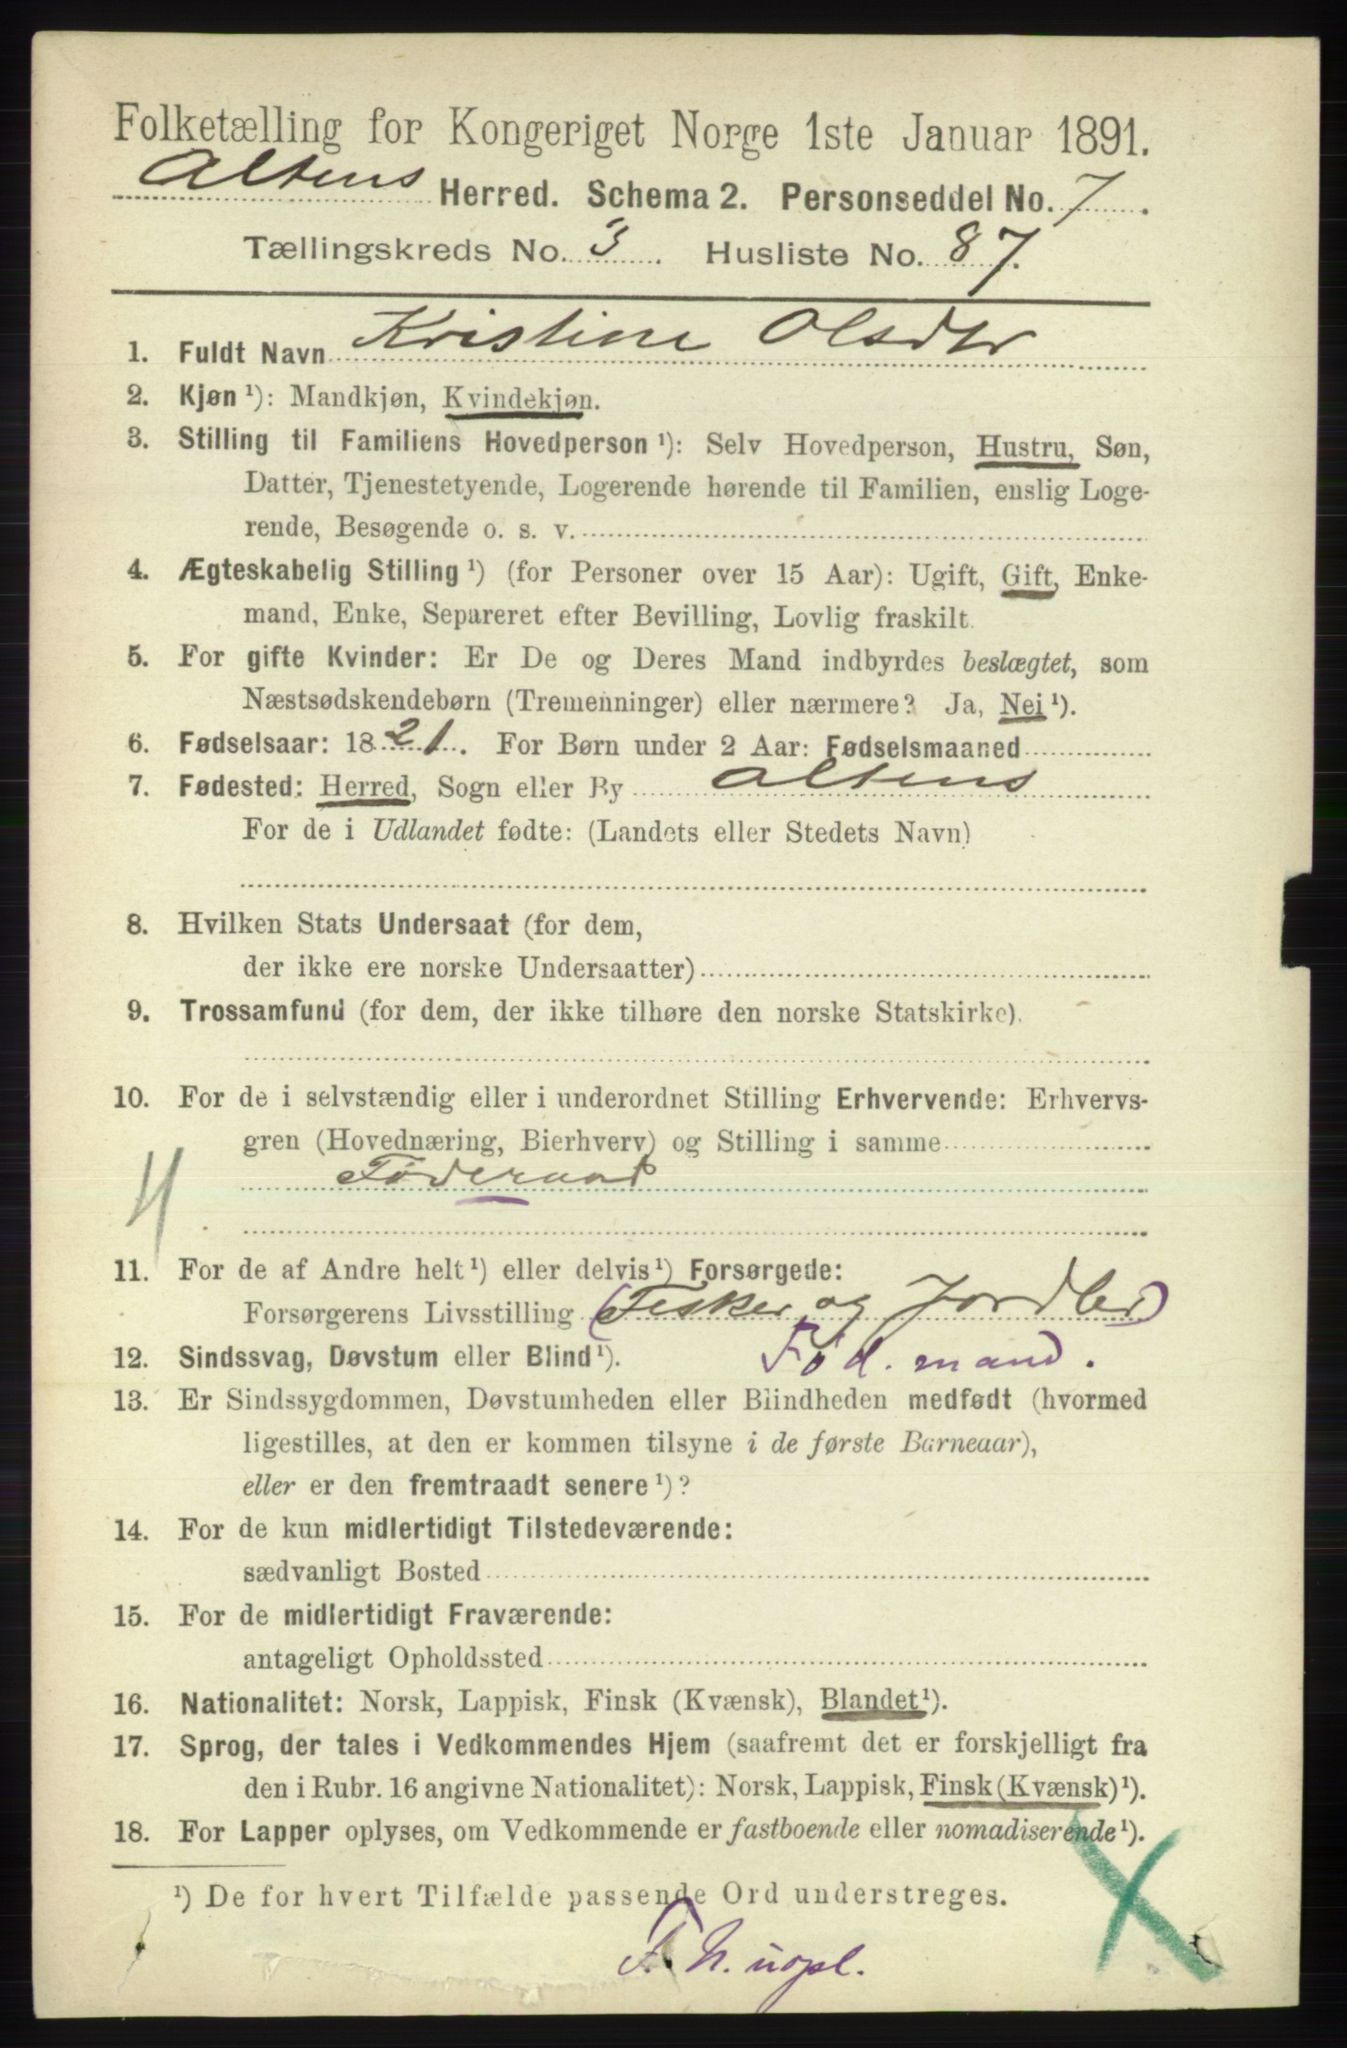 Folketælling for Kongeriget Norge 1ste Januar 1891.
Altens Herred. Schema 2. Personseddel No. 7.
Tællingskreds No. 3. Husliste No. 87.
1. Fuldt Navn Kristine Olsdtr
2. Kjøn ¹): Mandkjøn, Kvindekjøn.
3. Stilling til Familiens Hovedperson ¹): Selv Hovedperson, Hustru, Søn,
Datter, Tjenestetyende, Logerende hørende til Familien, enslig Loge-
rende, Besøgende o. s. v.
4. Ægteskabelig Stilling ¹) (for Personer over 15 Aar): Ugift, Gift, Enke-
mand, Enke, Separeret efter Bevilling, Lovlig fraskilt.
5. For gifte Kvinder: Er De og Deres Mand indbyrdes beslægtet, som
Næstsødskendebørn (Tremenninger) eller nærmere? Ja, Nei ¹).
6. Fødselsaar: 1821. For Børn under 2 Aar: Fødselsmaaned
7. Fødested: Herred, Sogn eller By Altens
For de i Udlandet fødte: (Landets eller Stedets Navn)
8. Hvilken Stats Undersaat (for dem,
der ikke ere norske Undersaatter)
9. Trossamfund (for dem, der ikke tilhøre den norske Statskirke).
10. For de i selvstændig eller i underordnet Stilling Erhvervende: Erhvervs-
gren (Hovednæring, Bierhverv) og Stilling i samme
Føderaad
4
11. For de af Andre helt ¹) eller delvis ¹) Forsørgede:
Forsørgerens Livsstilling (Fisker og Jordbr)
12. Sindssvag, Døvstum eller Blind ¹). Fød. mand.
13. Er Sindssygdommen, Døvstumheden eller Blindheden medfødt (hvormed
ligestilles, at den er kommen tilsyne i de første Barneaar),
eller er den fremtraadt senere ¹)?
14. For de kun midlertidigt Tilstedeværende:
sædvanligt Bosted
15. For de midlertidigt Fraværende:
antageligt Opholdssted
16. Nationalitet: Norsk, Lappisk, Finsk (Kvænsk), Blandet ¹).
17. Sprog, der tales i Vedkommendes Hjem (saafremt det er forskjelligt fra
den i Rubr. 16 angivne Nationalitet): Norsk, Lappisk, Finsk (Kvænsk) ¹).
18. For Lapper oplyses, om Vedkommende er fastboende eller nomadiserende ¹).
¹) De for hvert Tilfælde passende Ord understreges.
F. N.